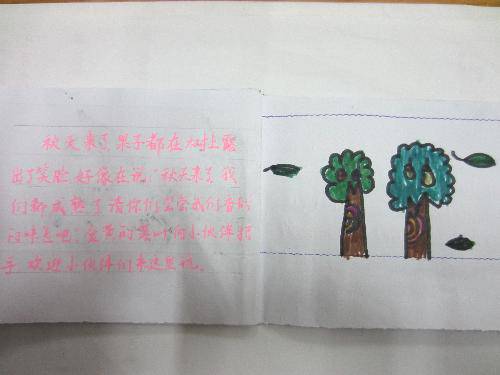 秋天来了,果子都在树上露
出了笑脸,好像在说:“秋天来了,我
们都成熟了,请你们尝尝我们香甜
的味道吧。”金黄的落叶向小伙伴招
手,欢迎小伙伴们来这里玩。